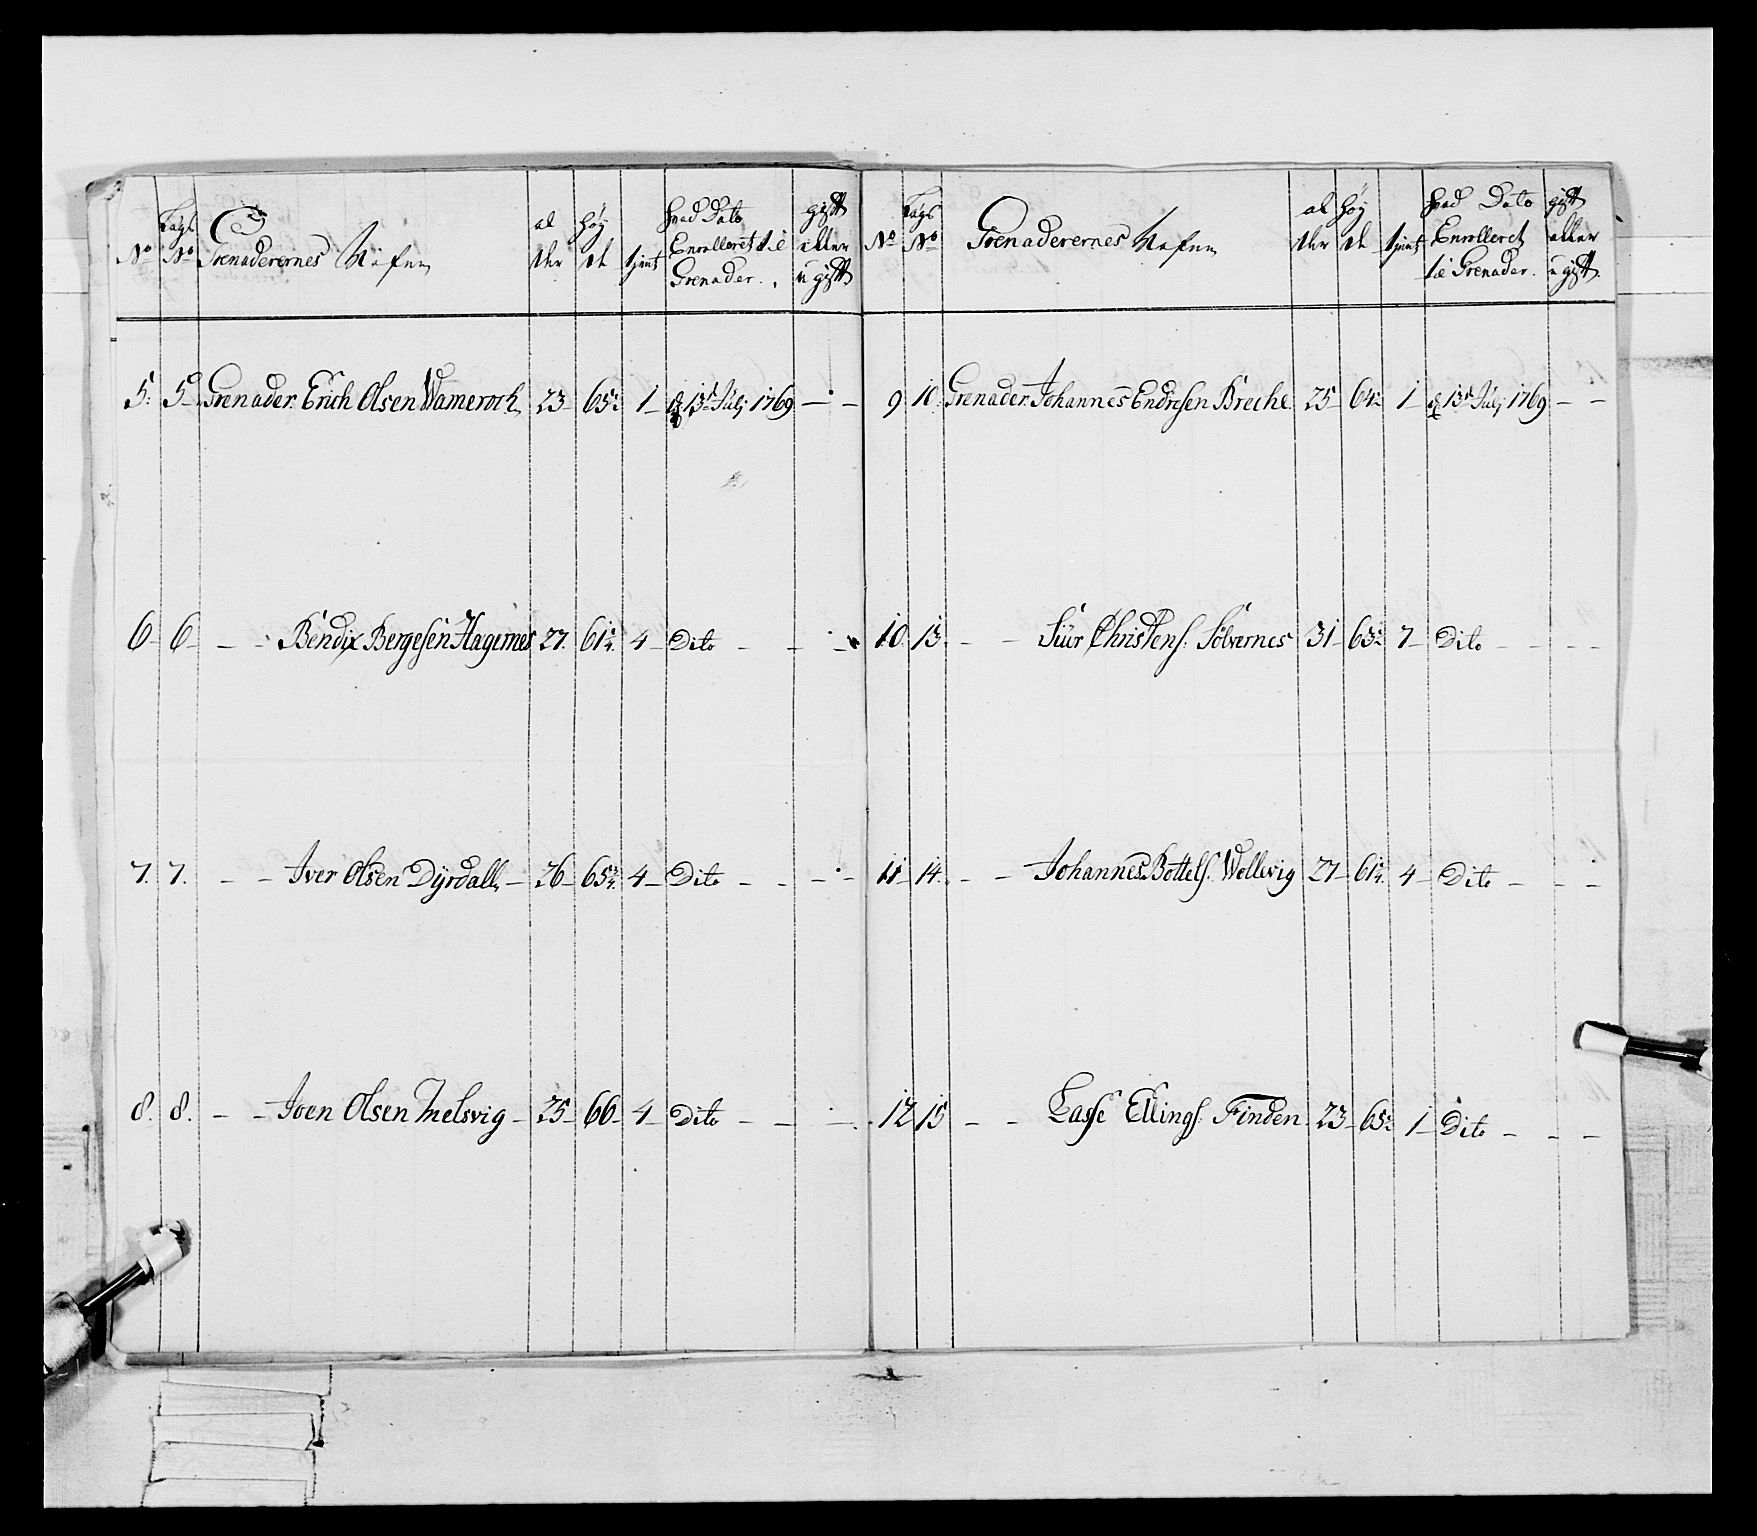 No Lægs No Grenaderernes Nafne al der höy de tient hvad Dato Enrolleret til Grenader. gift eller ugift
5. 5 Grenader Erich Olsen Wameroch 23 65 1 d 13de Julj 1769 — —
6 6 — — Bendix Bergesen Hagernes 27. 61 4 Dito — — —
7. 7. — — Iver Olsen Dyrdall 26 65 4 Dito — — — —
8. 8. — — Joen Olsen Melsvig 25 66 4 Dito — — —
No Lægs No Grenaderernes Nafne al der höy de tient hvad Dato Enrolleret til Grenader. gift eller ugift
9 10 Grenader Johannes Endresen Breche 25 64 1 d 13de Julj 1769 — —
10. 13. — — Siur Christens. Sölvernes 31 63 7 Dito — — — —
11 14. — — Johannes Bottels. Wollevig 27 61 4 Dito — — —
12 15 — — Lasse Ellings. Finden 23 65 1 Dito — — —